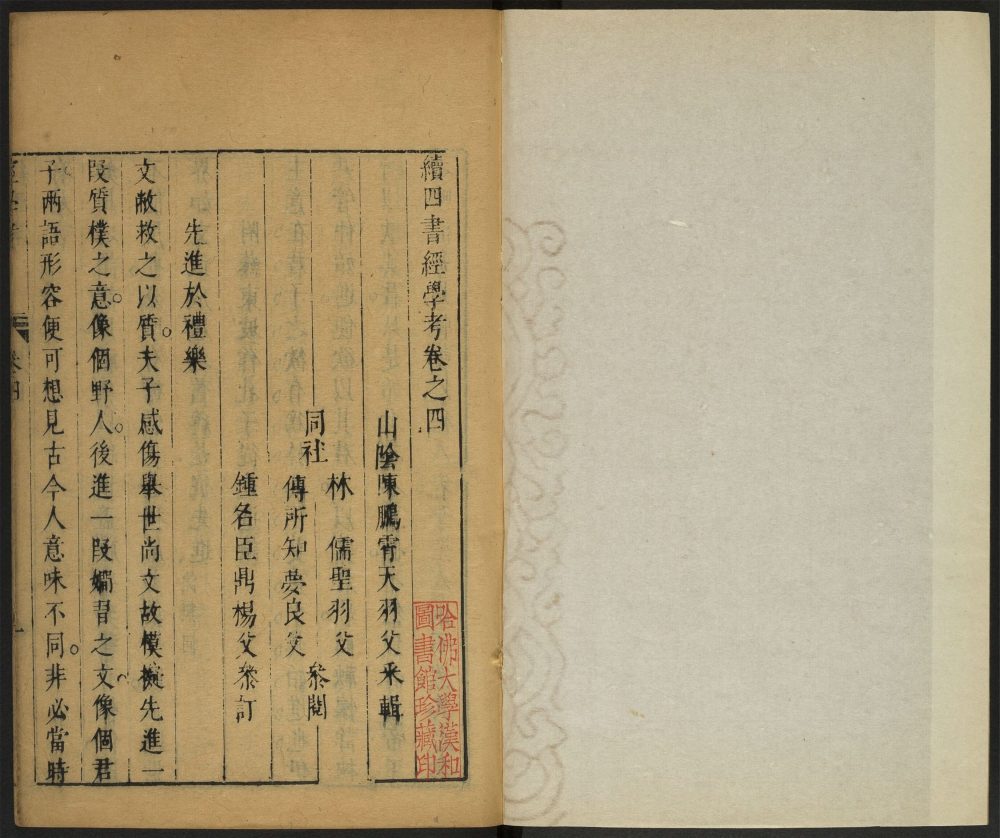 續四書經學考卷之四
山陰陳鵬霄天羽父采輯
同社
林儒聖羽父
傅所知夢良父
叅閱
鍾名臣鼎楊父叅訂
先進於禮樂
文敝救之以質。夫子感傷舉世尚文故模擬先進一
段質樸之意。像個野人。後進一段嫺習之文。像個君
子兩語形容便可想見古今人意味不同。非必當時
卷四
哈佛大學漢和
圖書館珍藏印